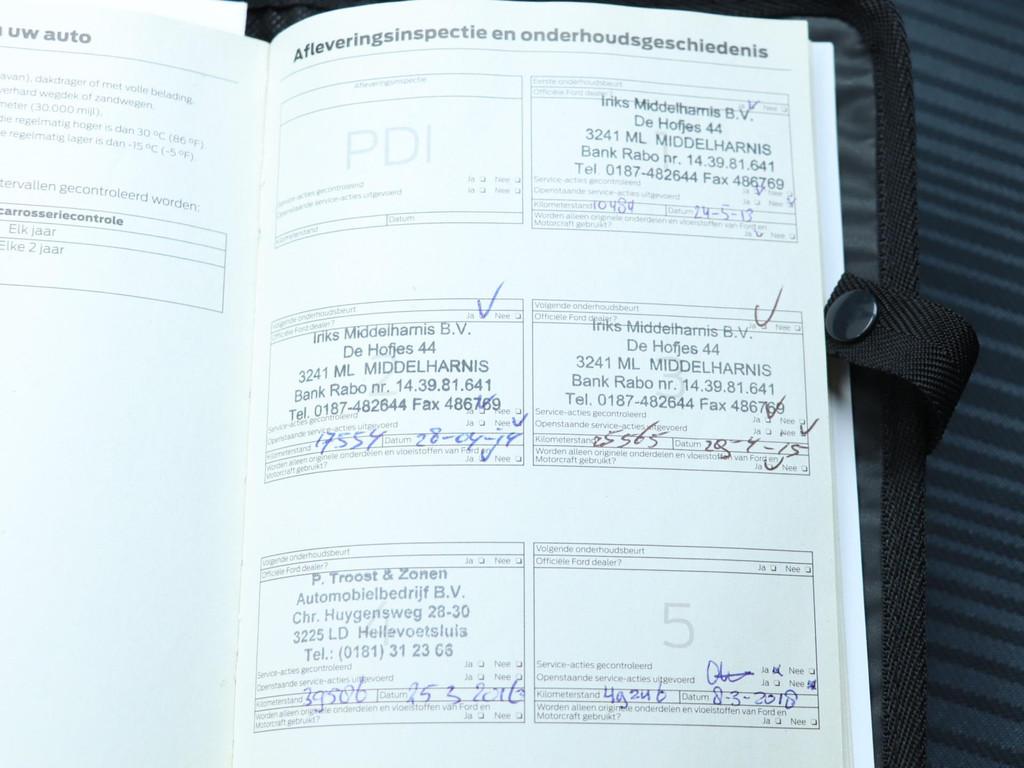 uw auto
avan), dakdrager of met volle belading.
verhard wegdek of zandwegen.
meter (30.000 mijl).
die regelmatig hoger is dan 30 ºC (86 ºF).
e regelmatig lager is dan -15 ºC (-5 ºF).
tervallen gecontroleerd worden:
carrosseriecontrole
Elk jaar
Elke 2 jaar
Afleveringsinspectie en onderhoudsgeschiedenis
Afleveringsinspectie
PDI
Service-acties gecontroleerd Ja Nee
Openstaande service-acties uitgevoerd Ja Nee
Kilometerstand Datum
Eerste onderhoudsbeurt
Officiële Ford dealer? Ja Nee
Iriks Middelharnis B.V.
De Hofjes 44
3241 ML MIDDELHARNIS
Bank Rabo nr. 14.39.81.641
Tel. 0187-482644 Fax 486769
Service-acties gecontroleerd Ja Nee
Openstaande service-acties uitgevoerd Ja Nee
Kilometerstand Datum 24-5-13
Worden alleen originele onderdelen en vloeistoffen van Ford en
Motorcraft gebruikt? Ja Nee
Volgende onderhoudsbeurt
Officiële Ford dealer? Ja Nee
Iriks Middelharnis B.V.
De Hofjes 44
3241 ML MIDDELHARNIS
Bank Rabo nr. 14.39.81.641
Tel. 0187-482644 Fax 486769
Service-acties gecontroleerd Ja Nee
Openstaande service-acties uitgevoerd Ja Nee
Kilometerstand 17554 Datum 28-04-14
Worden alleen originele onderdelen en vloeistoffen van Ford en
Motorcraft gebruikt? Ja Nee
Volgende onderhoudsbeurt
Officiële Ford dealer? Ja Nee
Iriks Middelharnis B.V.
De Hofjes 44
3241 ML MIDDELHARNIS
3
Bank Rabo nr. 14.39.81.641
Tel. 0187-482644 Fax 486769
Service-acties gecontroleerd Ja Nee
Openstaande service-acties uitgevoerd Ja Nee
Kilometerstand 25565 Datum 28-4-15
Worden alleen originele onderdelen en vloeistoffen van Ford en
Motorcraft gebruikt? Ja Nee
Volgende onderhoudsbeurt
Officiële Ford dealer? Ja Nee
P. Troost & Zonen
Automobielbedrijf B.V.
Chr. Huygensweg 28-30
3225 LD Hellevoetsluis
Tel.: (0181) 31 23 66
Service-acties gecontroleerd Ja Nee
Openstaande service-acties uitgevoerd Ja Nee
Kilometerstand 39506 Datum 25 3 2016
Worden alleen originele onderdelen en vloeistoffen van Ford en
Motorcraft gebruikt? Ja Nee
Volgende onderhoudsbeurt
Officiële Ford dealer? Ja Nee
5
Service-acties gecontroleerd Ja Nee
Openstaande service-acties uitgevoerd Ja Nee
Kilometerstand 49246 Datum 8-3-2018
Worden alleen originele onderdelen en vloeistoffen van Ford en
Motorcraft gebruikt? Ja Nee